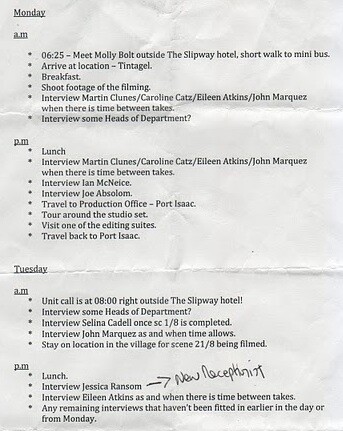 Monday
a.m
* 06:25 – Meet Molly Bolt outside The Slipway hotel, short walk to mini bus.
* Arrive at location – Tintagel.
* Breakfast.
* Shoot footage of the filming.
* Interview Martin Clunes/Caroline Catz/Eileen Atkins/John Marquez
when there is time between takes.
* Interview some Heads of Department?
p.m
* Lunch
* Interview Martin Clunes/Caroline Catz/Eileen Atkins/John Marquez
when there is time between takes.
* Interview Ian McNeice.
* Interview Joe Absolom.
* Travel to Production Office – Port Isaac.
* Tour around the studio set.
* Visit one of the editing suites.
* Travel back to Port Isaac.
Tuesday
a.m
* Unit call is at 08:00 right outside The Slipway hotel!
* Interview some Heads of Department?
* Interview Selina Cadell once sc 1/8 is completed.
* Interview John Marquez as and when time allows.
* Stay on location in the village for scene 21/8 being filmed.
p.m
* Lunch.
* Interview Jessica Ransom → New Receptionist
* Interview Eileen Atkins as and when there is time between takes.
* Any remaining interviews that haven't been fitted in earlier in the day or
from Monday.